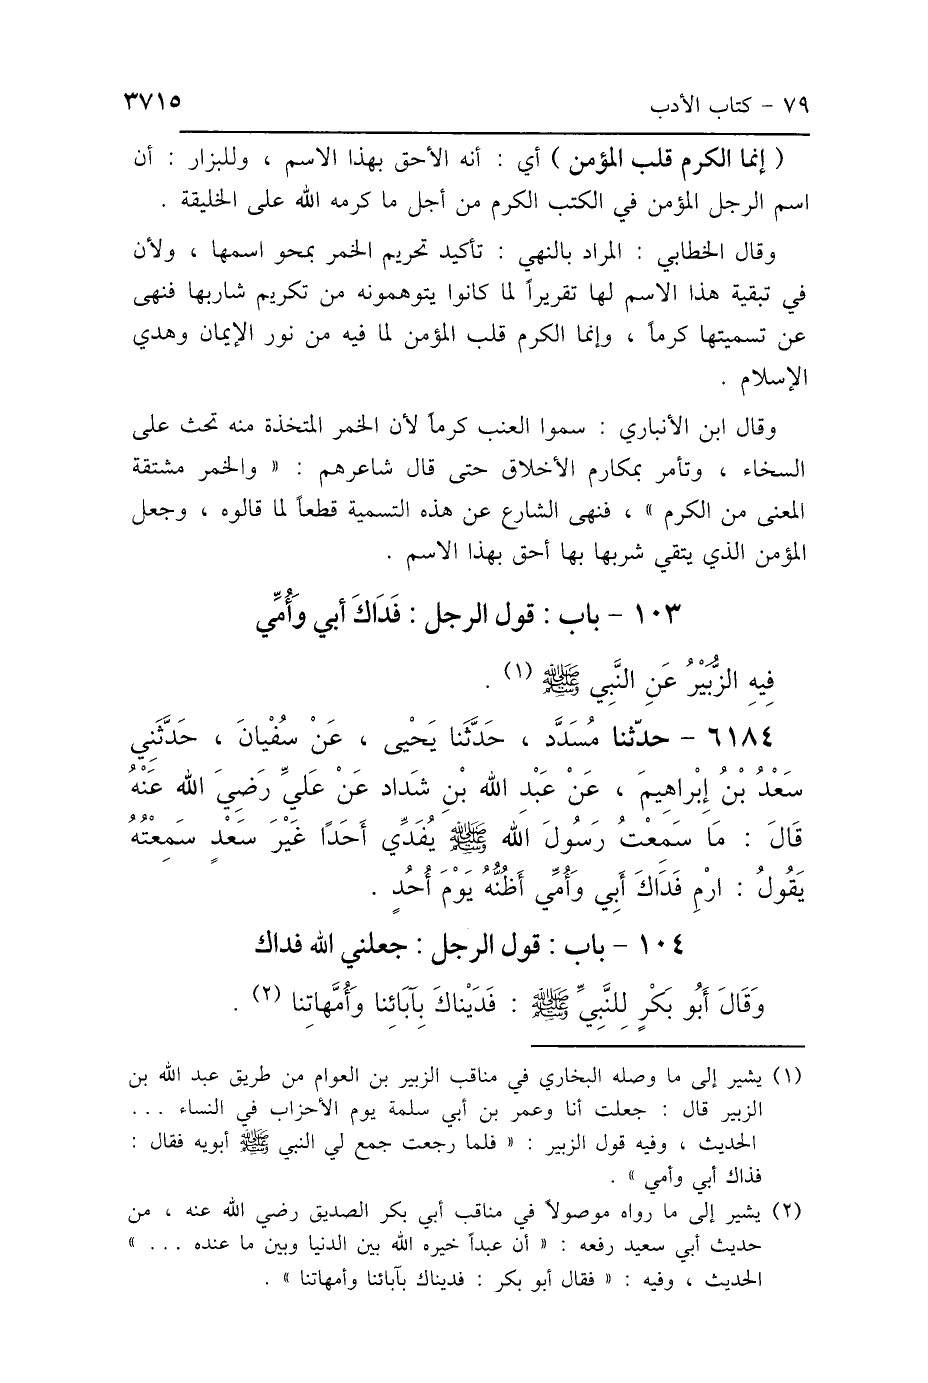 ٧٩ - كتاب الأدب ٣٧١٥
( إنما الكرم قلب المؤمن ) أي : أنه الأحق بهذا الاسم ، وللبزار : أن
اسم الرجل المؤمن في الكتب الكرم من أجل ما كرمه الله على الخليقة .
وقال الخطابي : المراد بالنهي : تأكيد تحريم الخمر بمحو اسمها ، ولأن
في تبقية هذا الاسم لها تقريراً لما كانوا يتوهمونه من تكريم شاربها فنهى
عن تسميتها كرماً ، وإنما الكرم قلب المؤمن لما فيه من نور الإيمان وهدي
الإسلام .
وقال ابن الأنباري : سموا العنب كرماً لأن الخمر المتخذة منه تحث على
السخاء ، وتأمر بمكارم الأخلاق حتى قال شاعرهم : « والخمر مشتقة
المعنى من الكرم » ، فنهى الشارع عن هذه التسمية قطعاً لما قالوه ، وجعل
المؤمن الذي يتقي شربها بها أحق بهذا الاسم .
١٠٣ - باب : قول الرجل : فَدَاكَ أبي وأُمِّي
فِيهِ الزُّبَيْرُ عَنِ النَّبِي ﷺ (١) .
٦١٨٤ - حدّثنا مُسَدَّد ، حَدَّثَنا يَحْيى ، عَنْ سُفْيانَ ، حَدَّثَني
سَعْدُ بْنُ إِبْراهِيمَ ، عَنْ عَبْدِ الله بْنِ شَداد عَنْ عَليِّ رَضِيَ الله عَنْهُ
قَالَ : مَا سَمَعْتُ رَسُولَ الله ﷺ يُفَدِّي أَحَدًا غَيْرَ سَعدٍ سَمِعْتُهُ
يَقُولُ : ارْمِ فَدَاكَ أَبِي وأُمِّي أَظنُّهُ يَوْمَ أُحُدٍ .
١٠٤ - باب : قول الرجل : جعلني الله فداك
وَقَالَ أَبُو بَكْرٍ لِلنَّبِيِّ ﷺ : فَدَيْناكَ بِآبَائِنا وأُمَّهاتِنا (٢) .
(١) يشير إلى ما وصله البخاري في مناقب الزبير بن العوام من طريق عبد الله بن
الزبير قال : جعلت أنا وعمر بن أبي سلمة يوم الأحزاب في النساء ...
الحديث ، وفيه قول الزبير : « فلما رجعت جمع لي النبي ﷺ أبويه فقال :
فذاك أبي وأمي » .
(٢) يشير إلى ما رواه موصولاً في مناقب أبي بكر الصديق رضي الله عنه ، من
حديث أبي سعيد رفعه : « أن عبداً خيره الله بين الدنيا وبين ما عنده ... »
الحديث ، وفيه : « فقال أبو بكر : فديناك بآبائنا وأمهاتنا » .